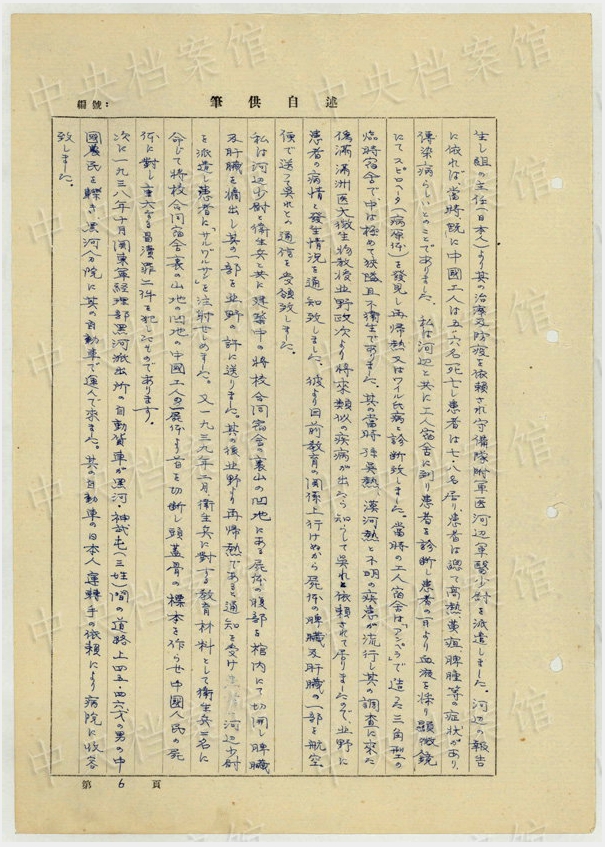 述自供筆
編號:
生し組の主任(日本人)より其の治療及防疫を依頼され守備隊附軍医河辺軍醫少尉を派遣しました。河辺の報告
に依れば當時既に中國工人は五・六名死亡し患者は七・八名居り患者は總て高熱黄疸脾腫等の症状があり、
傳染病らしいとのことでありました。私は河辺と共に工人宿舍に到り患者を診断し患者の耳より血液を採り顯微鏡
にてスピロヘータ(病原体)を発見し再帰熱又はワイル氏病と診断致しました。當時の工人宿舍は「アンペラ」で造った三角型の
臨時宿舍で、中は極めて狭隘且不衛生でありました。其の當時孫吳熱、漠河熱と不明の疾患が流行し其の調査に來た
偽滿滿洲医大微生物教授北野政次より將來類似の疾病が出たら知らして吳れと依頼されて居りましたので、北野に
患者の病情と發生情況を通知致しました。彼より目前教育の関係上行けぬから屍体の脾臓及肝臓の一部を航空
便で送って吳れとの通信を受領致しました。
私は河辺少尉と衛生兵と共に建築中の將校合同宿舍の裏山の凹地にある屍体の腹部を棺内にて切開し脾臓
及肝臓を摘出し其の一部を北野の許に送りました。其の後北野より再帰熱であると通知を受け 河辺少尉
を派遣し患者に「サルワルサン」を注射せしめました。又一九三九年二月衛生兵に対する教育材料として衛生兵三名に
命じて將校合同宿舍裏の山地の凹地の中國工人の屍体より首を切断し頭蓋骨の標本を作らせ中國人民の死
体に対し重大なる冒瀆罪二件を犯したものであります。
次に一九三八年十月関東軍経理部黑河派出所の自動貨車が黑河・神武屯(三姓)間の道路上四五、四六才の男の中
國農民を轢き、黑河分院に其の自動車で運んで來ました。其の自動車の日本人運轉手の依頼により病院に收容
致しました。
第 6 頁
中央档案馆